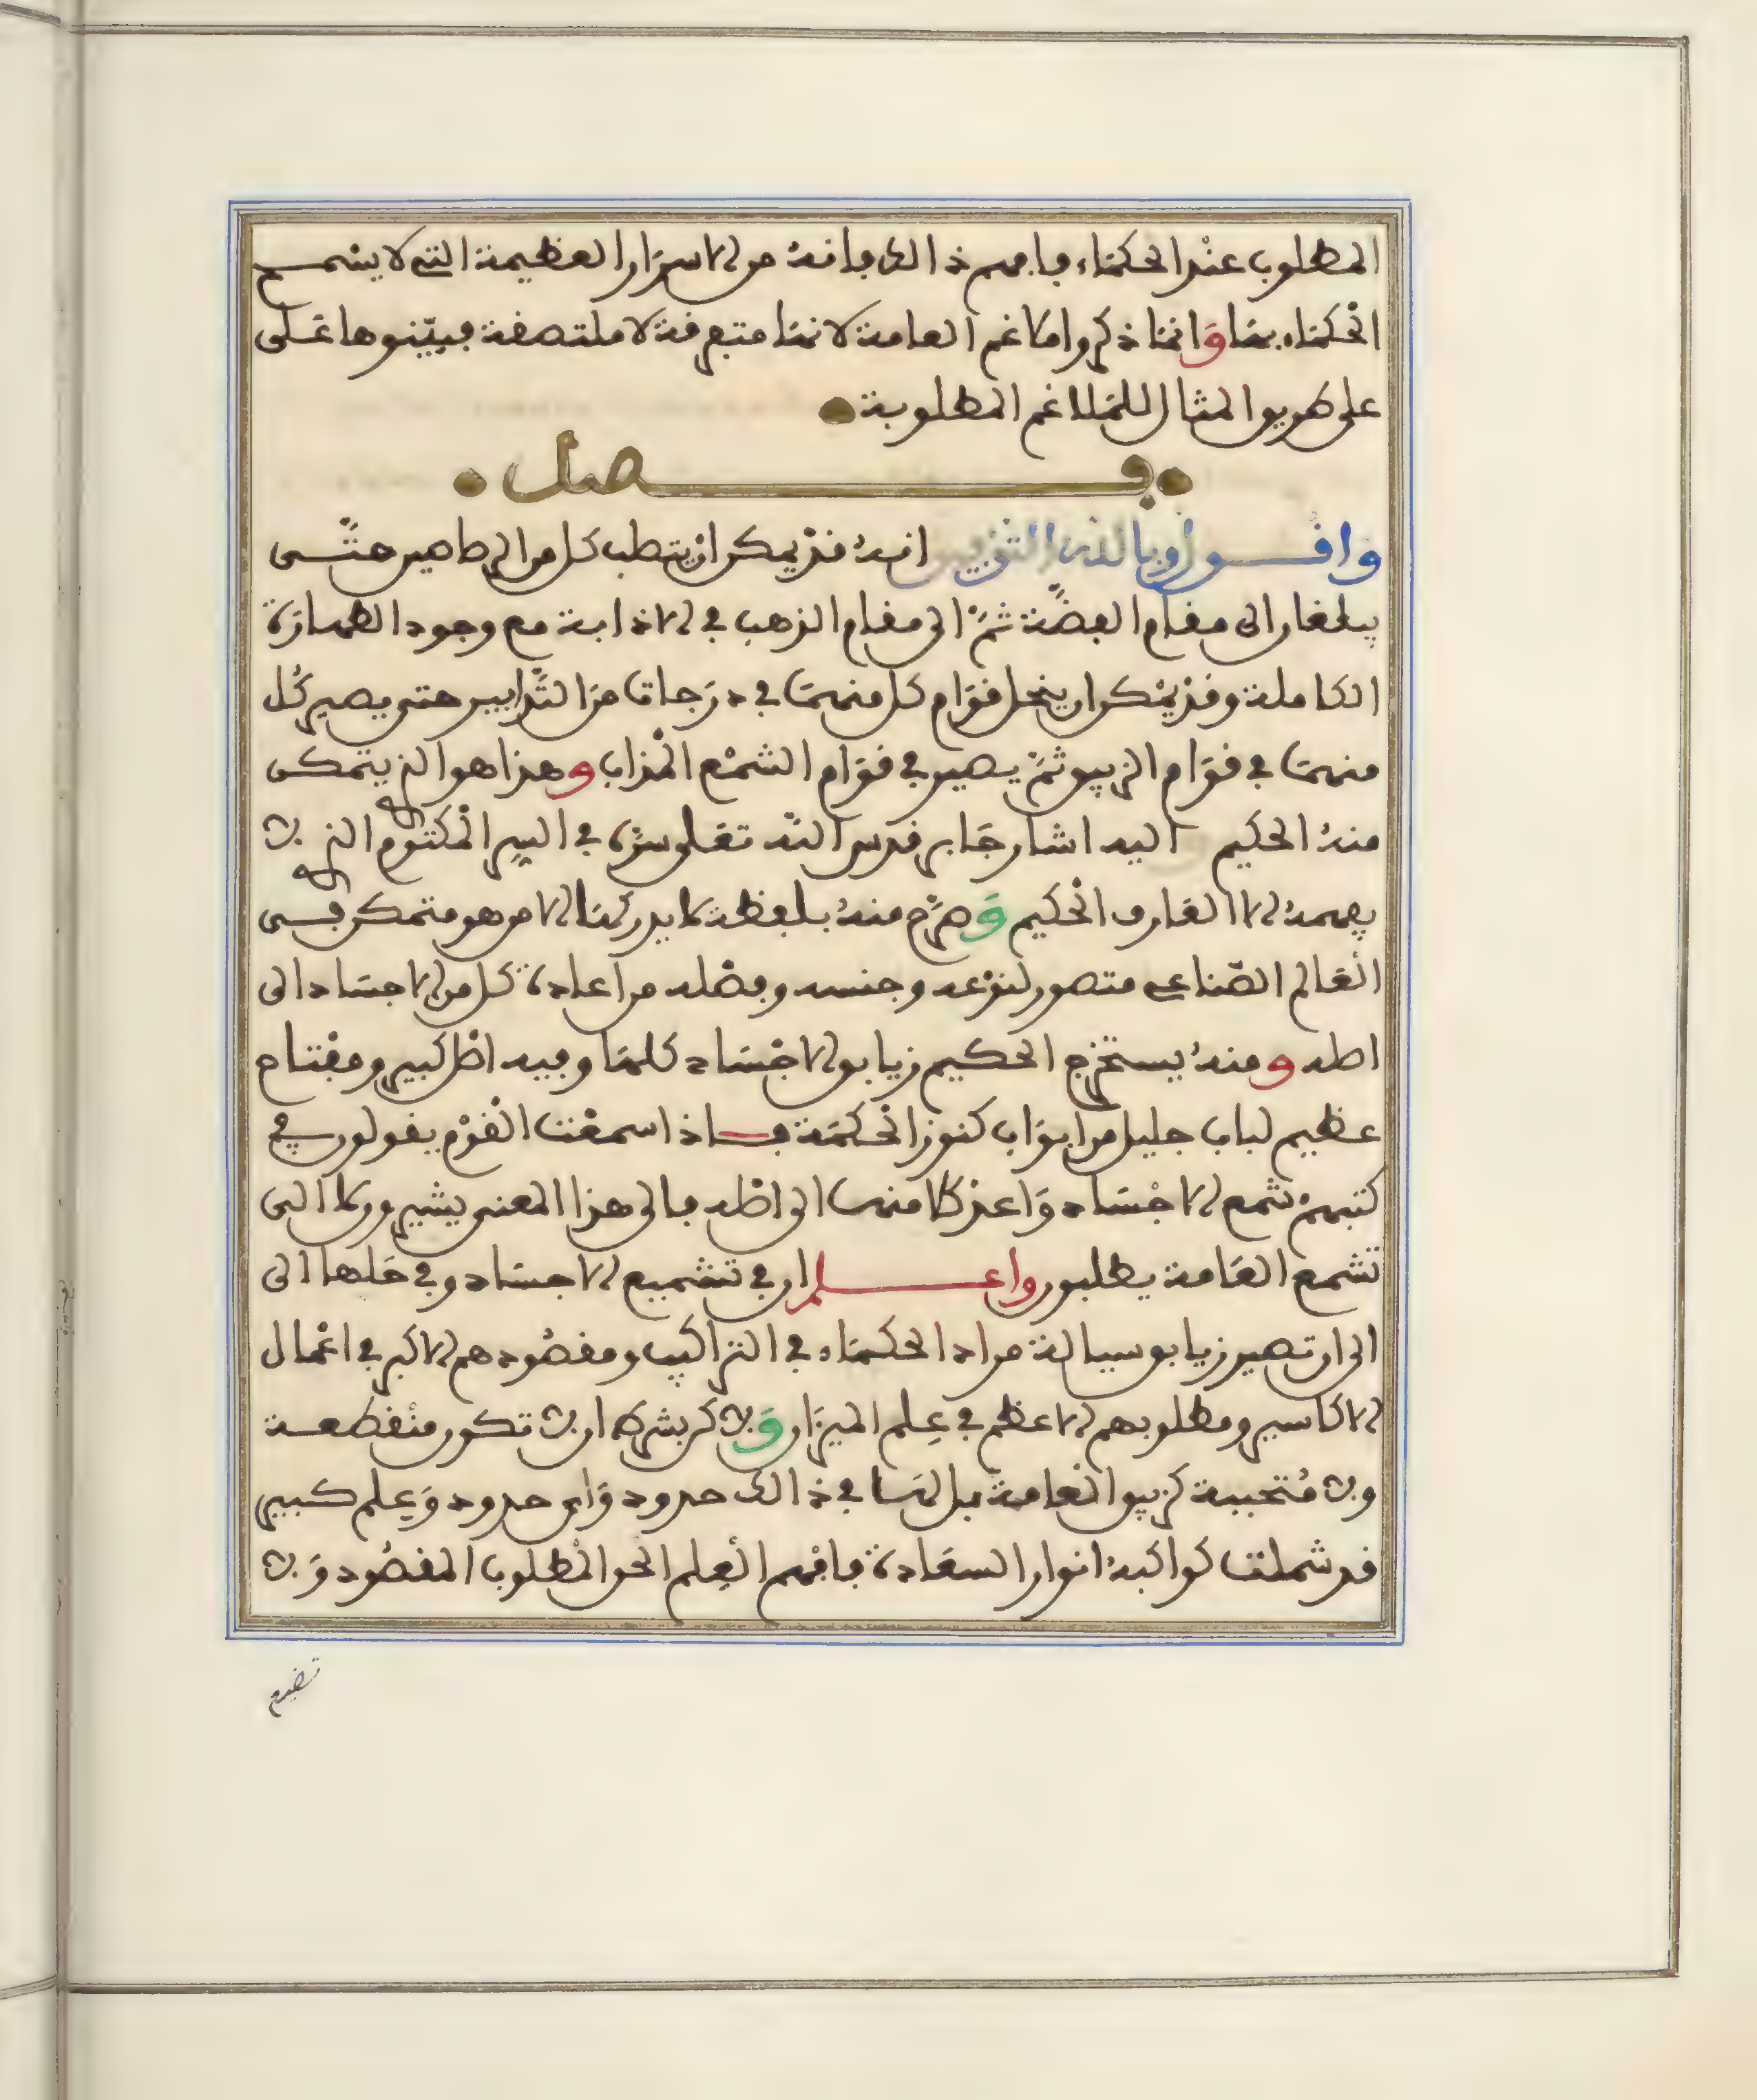 المطلوب عند الحكماء فافهم ذالك فانه من الاسرار العظيمة التى لا يسمح
الحكماء بها وانما ذكروا ملاغم العامة لانها متفرقة لا ملتصقة فبينوها على
على طريق المثال للملاغم المطلوبة
فصل
واقول وبالله التوفيق انه قد يمكن ان يتطب كل من الرصاصين حتى
يبلغان الى مقام الفضة ثم الى مقام الذهب في الاذابة مع وجود الطهارة
الكاملة وقد يمكن ان ينحل قوام كل منهما في درجات من التدابير حتى يصير كل
منهما في قوام الزيبق ثم يصير في قوام الشمع المذاب وهذا هو الذ يتمكن
منه الحكيم اليه اشار جابر قدس الله تعلى سره في السر المكتوم الذ لا
يفهمه الا العارف الحكيم وصرح منه بلفظة لا يدركها الا من هو متمكن في
العالم الصناعى متصور لنوعه وجنسه وفصله من اعادة كل من الاجساد الى
اصله ومنه يستخرج الحكيم زيابق الاجساد كلها وفيه اصل كبير ومفتاح
عظيم لباب جليل من ابواب كنوز الحكمة فاذا سمعت القوم يقولون في
كتبهم شمع الاجساد واعد كلا منها الى اصله فالى هذا المعنى يشيرون لا الى
تشمع العامة يطلبون واعلم ان في تشميع الاجساد وفي حلها الى
الى ان تصير زيابق سيالة مراد الحكماء في التراكيب ومقصودهم الاكبر في اعمال
الاكاسير ومطلوبهم الاعظم في علم الميزان ولاكن بشرط ان لا تكون منقطعة
ولا متحببة كزيبق العامة بل لها في ذالك حدود واى حدود وعلم كبير
قد شملت كواكبه انوار السعادة فافهم العلم الحق المطلوب المقصود ولا
تضيع